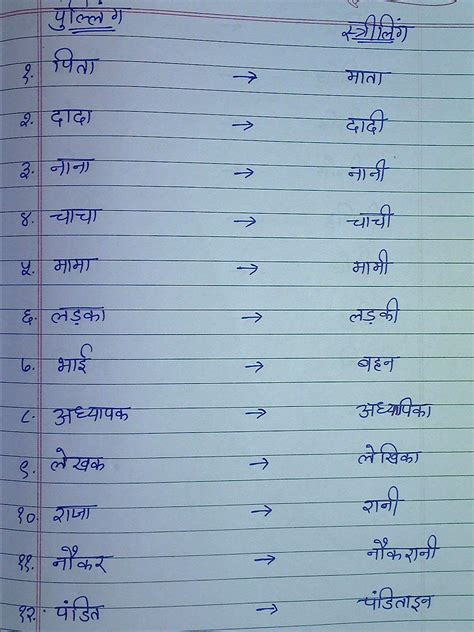 पुल्लिंग स्त्रीलिंग
१. पिता → माता
२. दादा → दादी
३. नाना → नानी
४. चाचा → चाची
५. मामा → मामी
६. लड़का → लड़की
७. भाई → बहन
८. अध्यापक → अध्यापिका
९. लेखक → लेखिका
१०. राजा → रानी
११. नौकर → नौकरानी
१२. पंडित → पंडिताइन